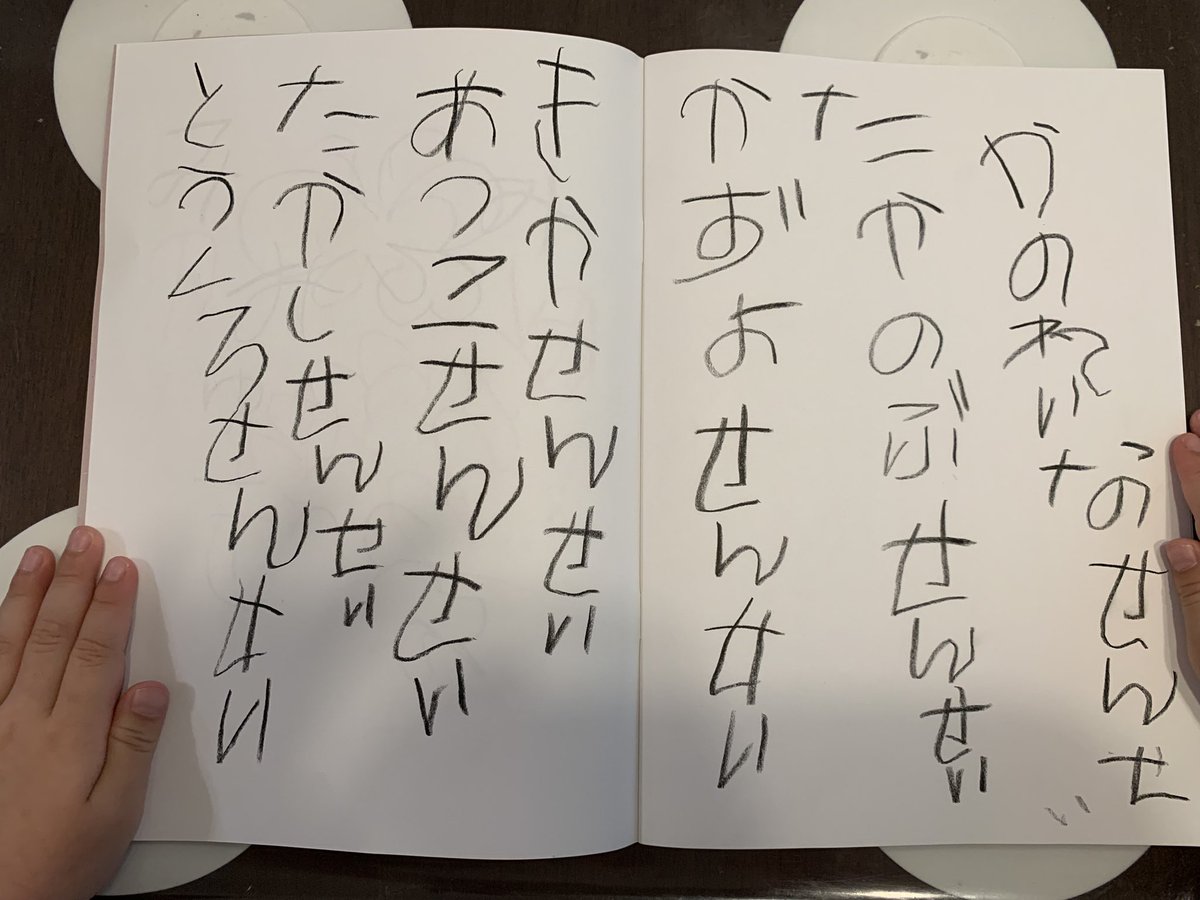 かのれいなせんせい
たかのぶせんせい
かずよせんせい
きかせんせい
あつこせんせい
たかしせんせい
とうくろせんせい